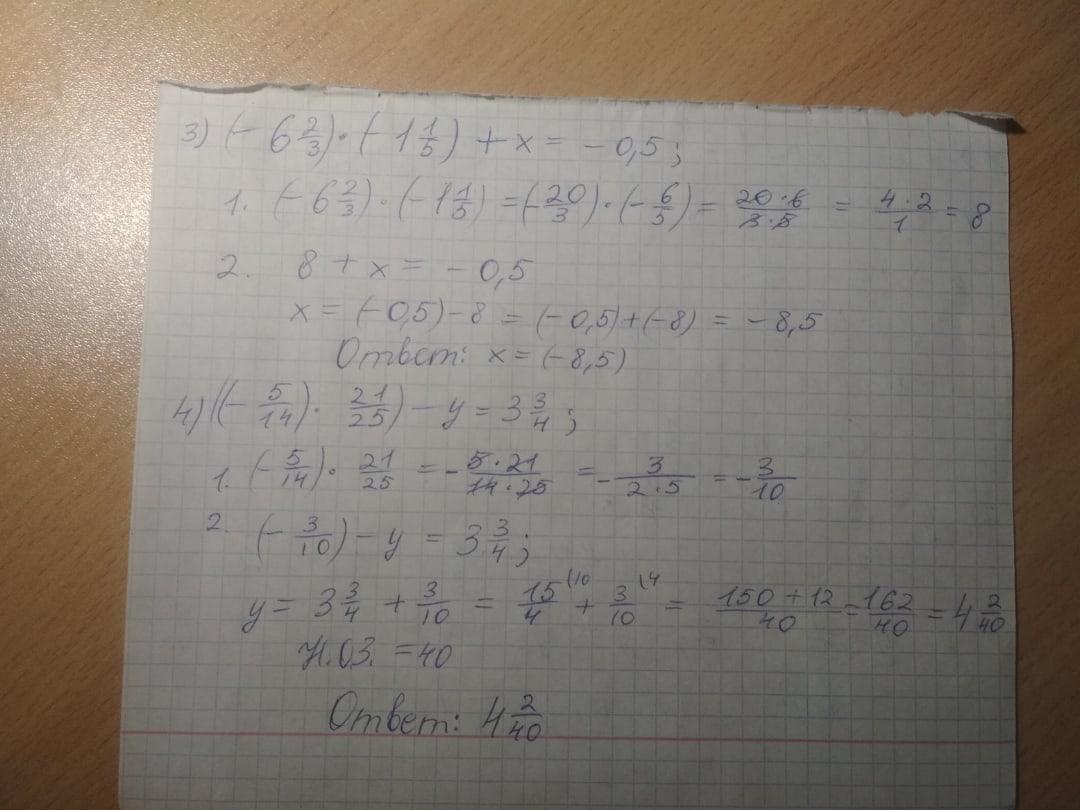 3) (- 6 2/3) · (- 1 1/5) + x = - 0,5;
1. (- 6 2/3) · (- 1 1/5) = (- 20/3) · (- 6/5) = 20·6/3·5 = 4·2/1 = 8
2. 8 + x = - 0,5
x = (-0,5) - 8 = (-0,5) + (-8) = - 8,5
Ответ: x = (-8,5)
4) ((- 5/14) · 21/25) - y = 3 3/4;
1. (- 5/14) · 21/25 = - 5·21/14·25 = - 3/2·5 = - 3/10
2. (- 3/10) - y = 3 3/4;
y = 3 3/4 + 3/10 = 15/4 \10 + 3/10 \4 = 150 + 12/40 = 162/40 = 4 2/40
Н.О.З. = 40
Ответ: 4 2/40